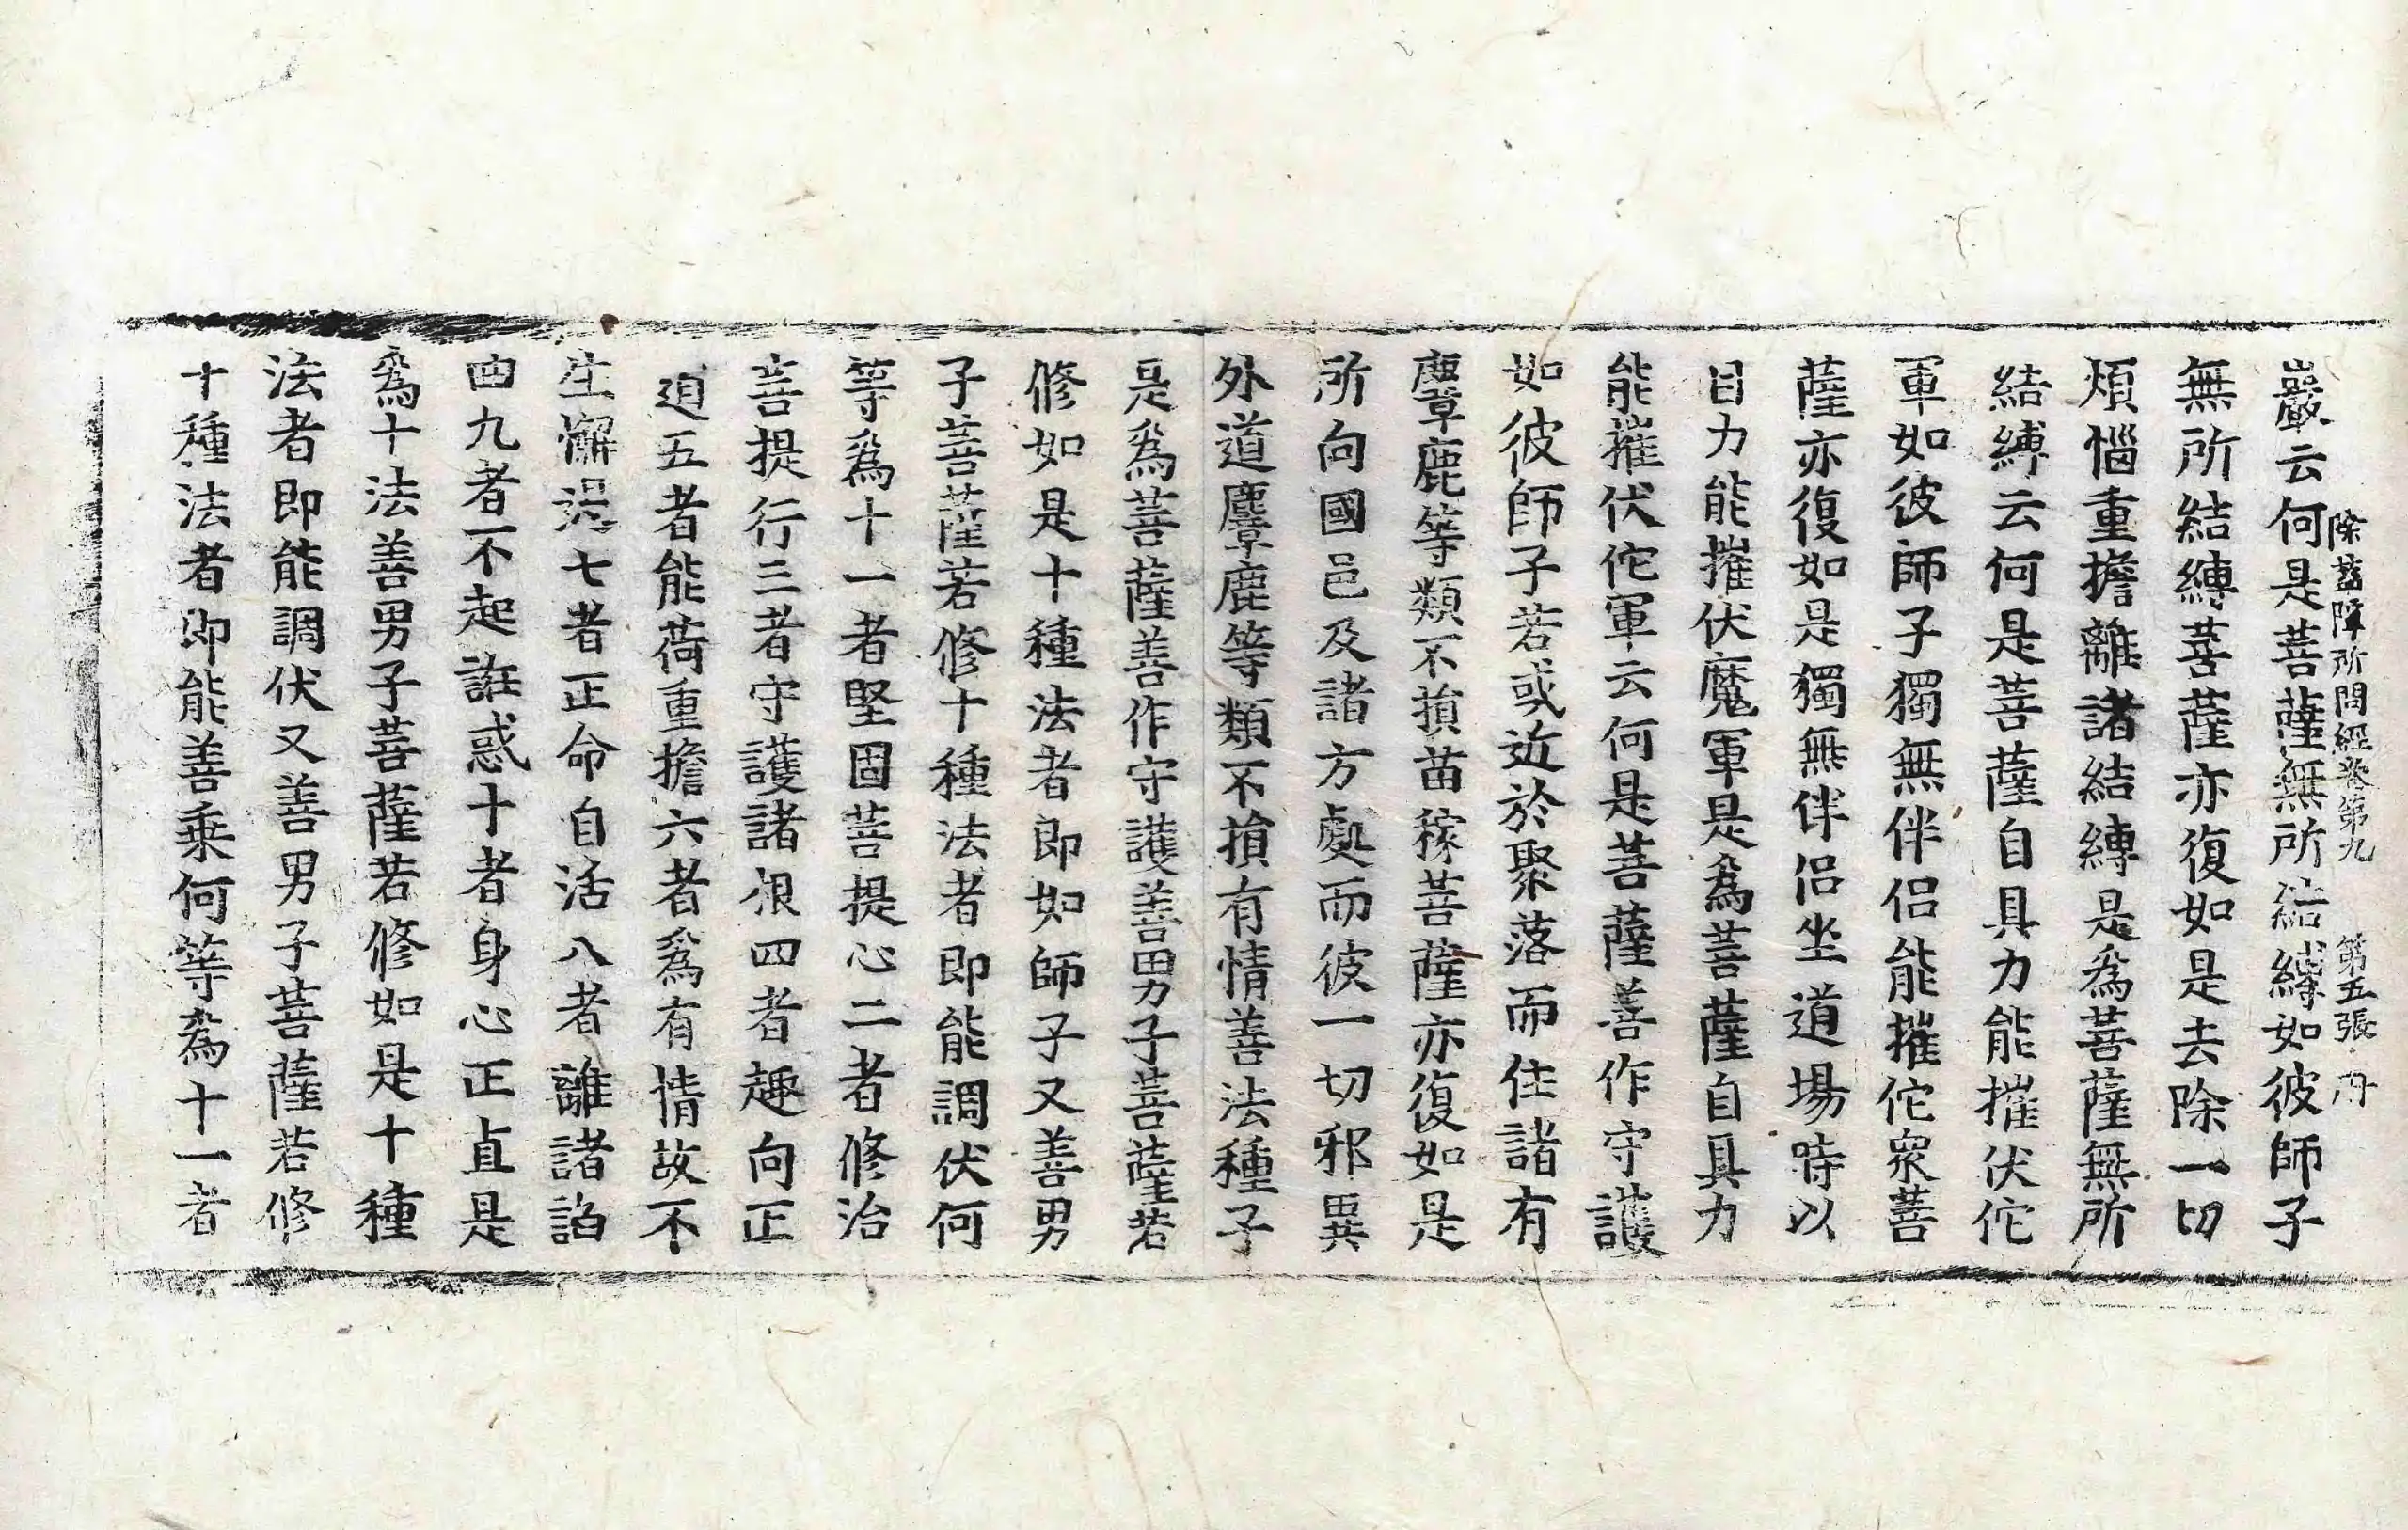 除蓋障所問經卷第九 第五張 丹
巖云何是菩薩無所結縛如彼師子
無所結縛菩薩亦復如是去除一切
煩惱重擔離諸結縛是爲菩薩無所
結縛云何是菩薩自具力能摧伏佗
軍如彼師子獨無伴侶能摧佗衆菩
薩亦復如是獨無伴侶坐道場時以
自力能摧伏魔軍是爲菩薩自具力
能摧伏佗軍云何是菩薩善作守護
如彼師子若或近於聚落而住諸有
麞鹿等類不損苗稼菩薩亦復如是
所向國邑及諸方處而彼一切邪異
外道麞鹿等類不損有情善法種子
是爲菩薩善作守護善男子菩薩若
修如是十種法者即如師子又善男
子菩薩若修十種法者即能調伏何
等爲十一者堅固菩提心二者修治
菩提行三者守護諸根四者趣向正
道五者能荷重擔六者爲有情故不
生懈退七者正命自活八者離諸諂
曲九者不起誑惑十者身心正直是
爲十法善男子菩薩若修如是十種
法者即能調伏又善男子菩薩若修
十種法者即能善乘何等爲十一者